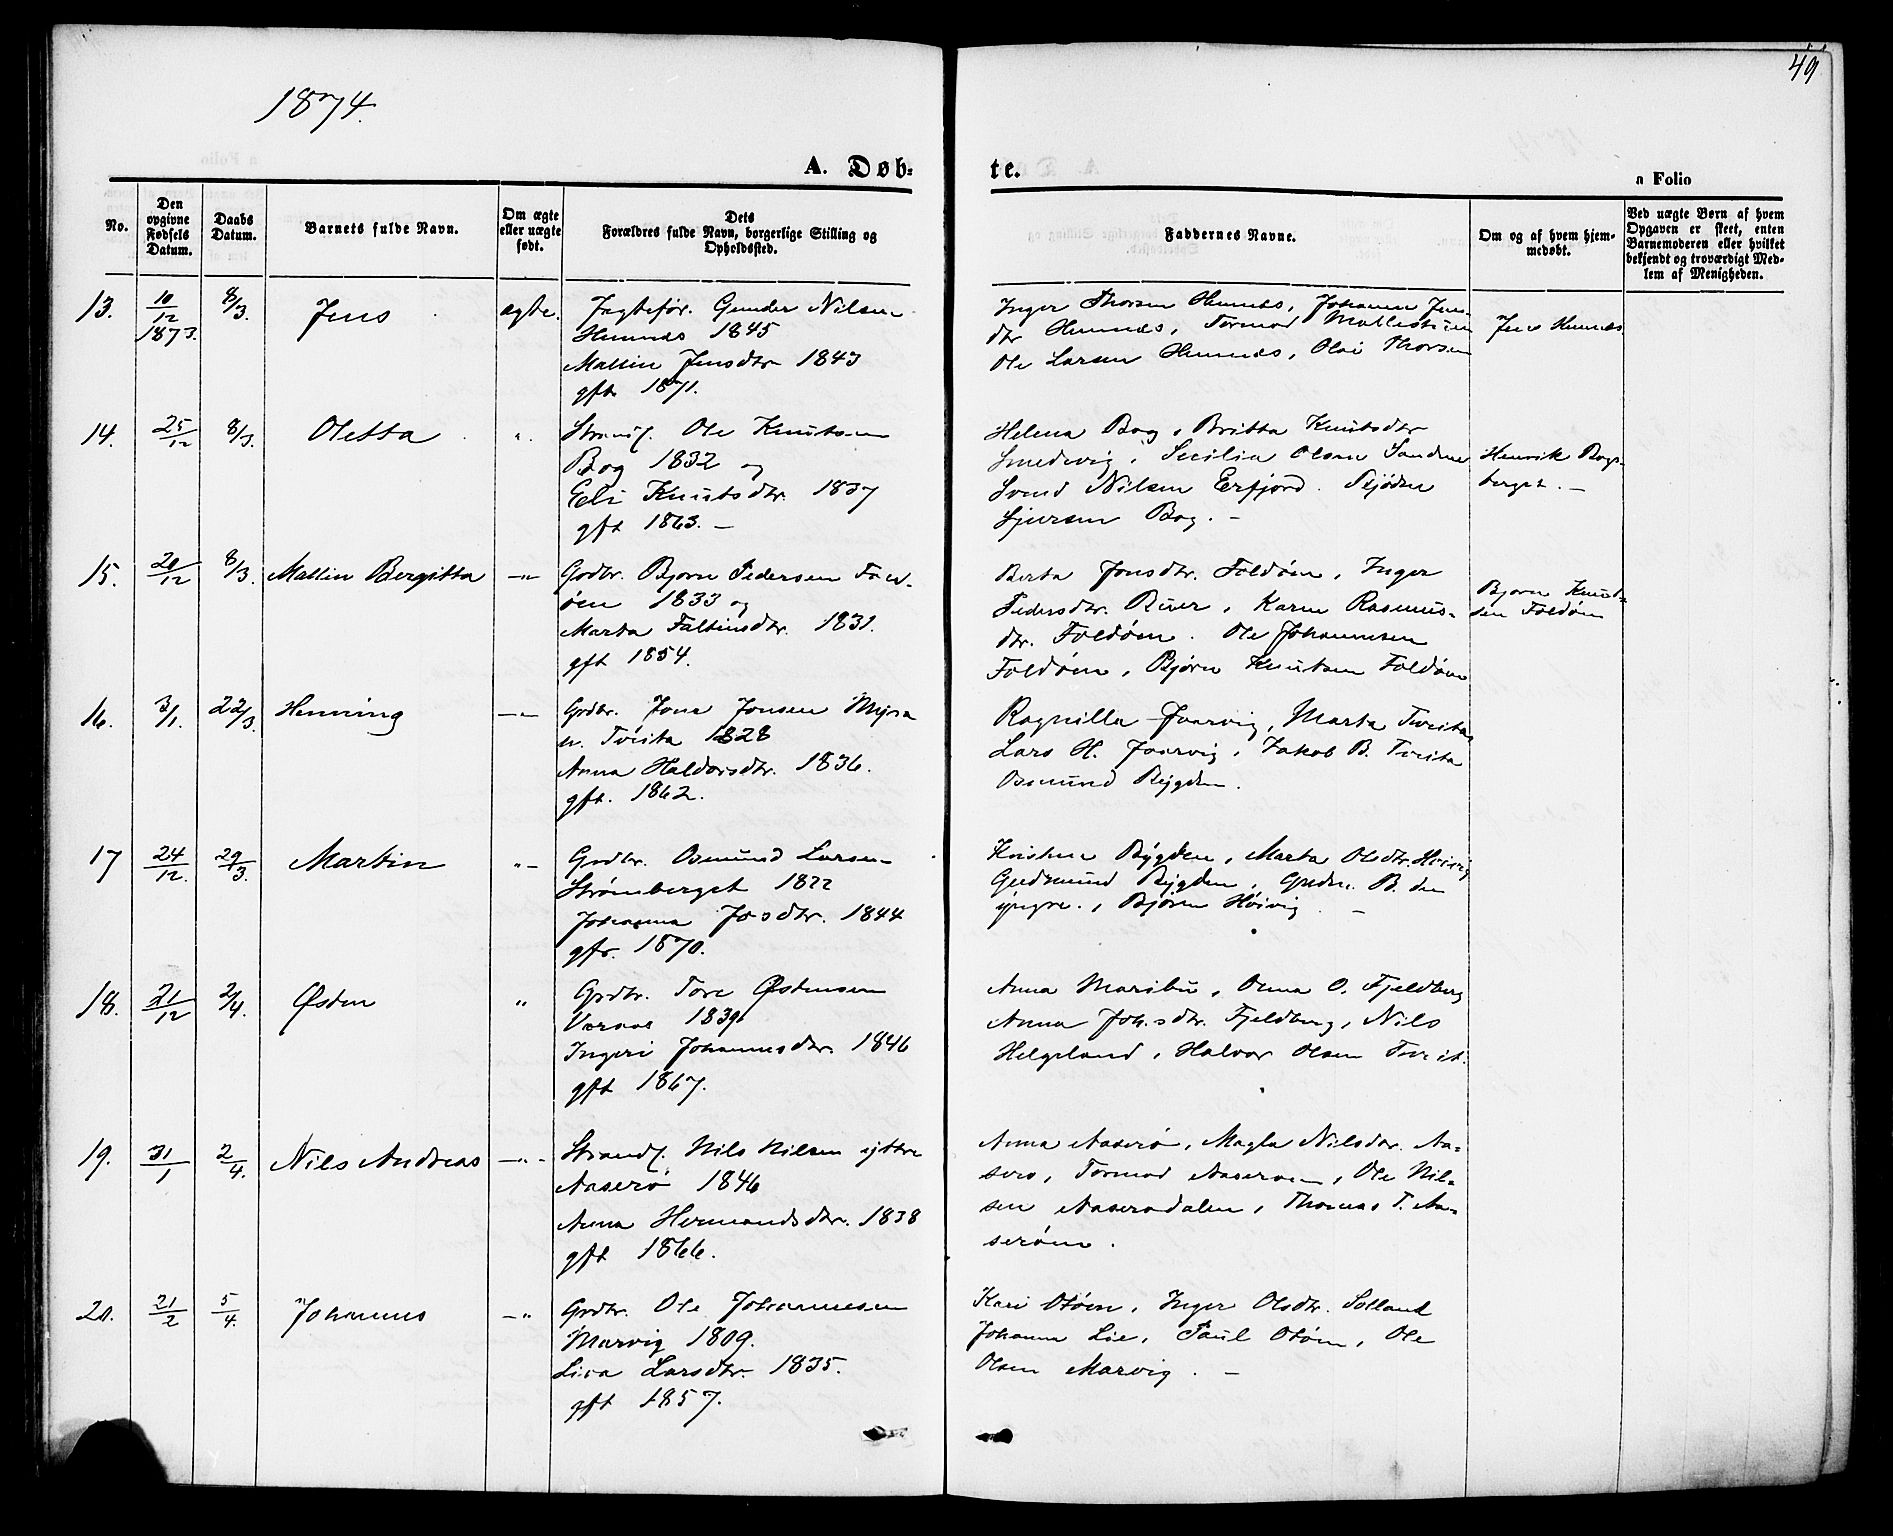 1874.
49
A. Døb-
te.
a Folio
No.
Den
opgivne
Fødsels
Datum.
Daabs
Datum.
Barnets fulde Navn.
Om ægte
eller uægte
født.
Dets
Forældres fulde Navn, borgerlige Stilling og
Opholdssted.
Faddernes Navne.
Om og af hvem hjem-
medøbt.
Ved uægte Børn af hvem
Opgaven er skeet, enten
Barnemoderen eller hvilket
bekjendt og troværdigt Med-
lem af Menigheden.
13.
10/12
1873.
8/3.
Jens
ægte.
Jagtefør. Gunder Nilsen
Hemnæs 1845
Mallin Jensdtr 1843
gft 1871.
Inger Thorsen Hemnæs, Johanna Jens-
dtr Hemnæs, Tormod
Ole Larsen Hemnæs, Olai Thorsen
Jens Hemnæs
14.
25/12
8/3.
Oletta
Strands. Ole Knutsen
Bog 1832 og
Eli Knutsdtr. 1837
gft 1863. –
Helena Bog, Britta Knutsdtr
Smedvig, Secilia Olsen Sandnes
Svend Nilsen Erfjord. Pejder
Sjursen Bog. –
Henrik Bogs-
berget. –
15.
20/12
8/3.
Mallin Bergitta
–„–
Grdbr. Bjorn Pedersen Fold-
øen 1833 og
Marta Faltinsdtr. 1831.
gft 1854.
Berta Jonsdtr. Foldøen, Inger
Pedersdtr. River, Karen Rasmus-
dtr. Foldøen. Ole Johannesen
Foldøen, Bjørn Knutsen Foldøen
Bjorn Knud-
sen Foldøen
16.
3/1.
22/3.
Henning
–„–
Grdbr. Jone Jonsen Myra
u. Tveita 1828
Anna Haldorsdtr. 1836.
gft. 1862.
Ragnilla Jaarvig, Marta Tveita
Lars H. Jaarvig, Jakob B. Tveita
Osmund Bygden.
17
24/12.
29/3.
Martin
„–
Grdbr. Osmund Larsen
Strømberget 1822
Johanna Josdtr. 1844
gft. 1870.
Kristine Bygden, Marta Olsdtr. Høivig
Gudmund Bygden, Gudm. B. den
yngre., Bjørn Høivig. –
18.
21/12
2/4.
Østen
„
Grdbr. Tore Østensen
Varaas 1839
Ingeri Johannesdtr. 1846
gft 1867.
Anna Maribu, Anna O. Fjeldberg
Anna Joh.sdtr. Fjeldberg, Nils
Helgeland, Halvor Olsen Tveit.
19.
31/1
2/4.
Nils Andreas
–„–
Strands. Nils Nilsen yttre
Aaserø 1846
Anna Hermandsdtr. 1838
gft 1866.
Anna Aaserø, Magla Nilsdtr. Aa-
serø, Tormod Aaserøen, Ole Nil-
sen Aaserødalen, Thomas T. Aa-
serøen.
20.
21/2
5/4.
Johannes
–„
Grdbr. Ole Johannesen
Marvig 1809.
Liva Larsdtr. 1835.
gft 1857.
Kari Otøen, Inger Olsdtr. Solland
Johanna Lie, Paul Otøen, Ole
Olsen Marvig. –